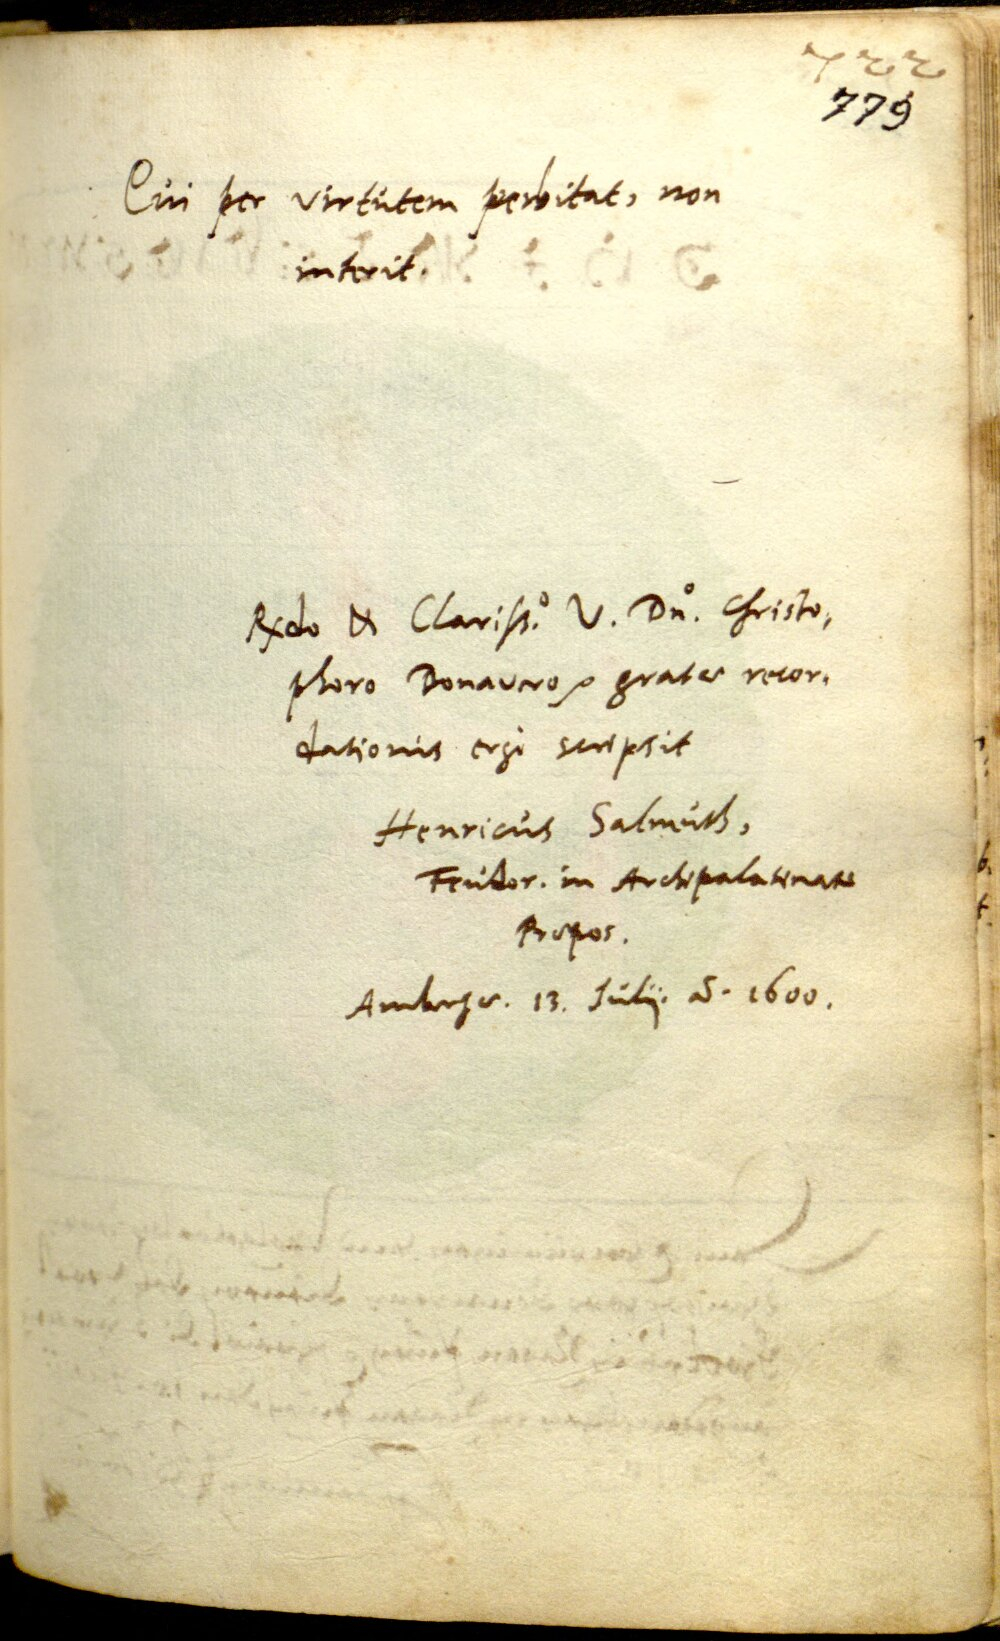 722
779
Cui per virtutem perbitat, non
interit.
Rdo & Clariss.o V. Dno. Christo,
phoro Donavero gratae recor,
dationis ergo scripsit
Henricus Salmuth,
Feudor. in Archipalatinatu
Propos.
Ambergae. 13. Julij. ao. 1600.